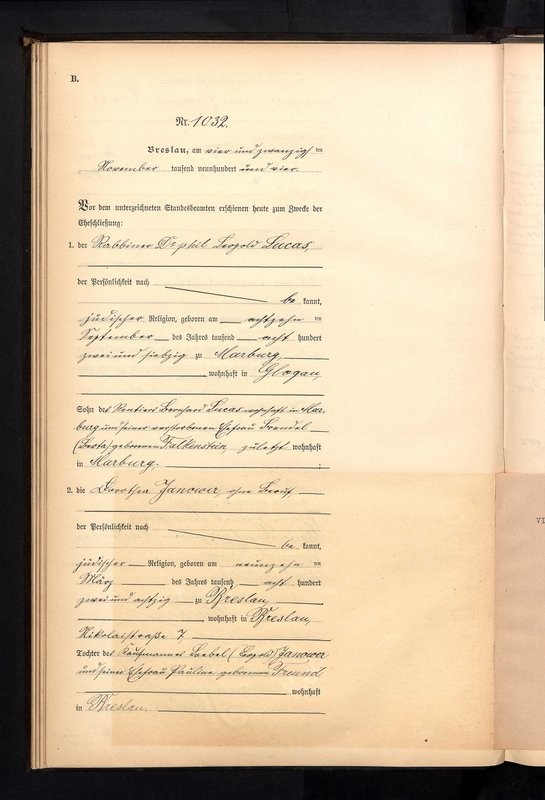 B.
Nr. 1032.
Breslau, am vier und zwanzigsten
November tausend neunhundert und vier.
Vor dem unterzeichneten Standesbeamten erschienen heute zum Zwecke der
Eheschließung:
1. der Rabbiner Dr phil Leopold Lucas,
der Persönlichkeit nach
be kannt,
jüdischer Religion, geboren am achtzehn ten
September des Jahres tausend acht hundert
zwei und siebzig zu Marburg,
wohnhaft in Glogau,
Sohn des Rentiers Bernhard Lucas wohnhaft in Mar-
burg und seiner verstorbenen Ehefrau Brendel
(Berta) geborenen Falkenstein, zuletzt wohnhaft
in Marburg.
2. die Dorothea Janower, ohne Beruf,
der Persönlichkeit nach
be kannt,
jüdischer Religion, geboren am neunzehn ten
März des Jahres tausend acht hundert
zwei und achtzig zu Breslau,
wohnhaft in Breslau,
Nikolaistraße 7
Tochter des Kaufmannes Loebel (Leopold) Janower
und seiner Ehefrau Pauline geborenen Freund
wohnhaft
in Breslau.
VI